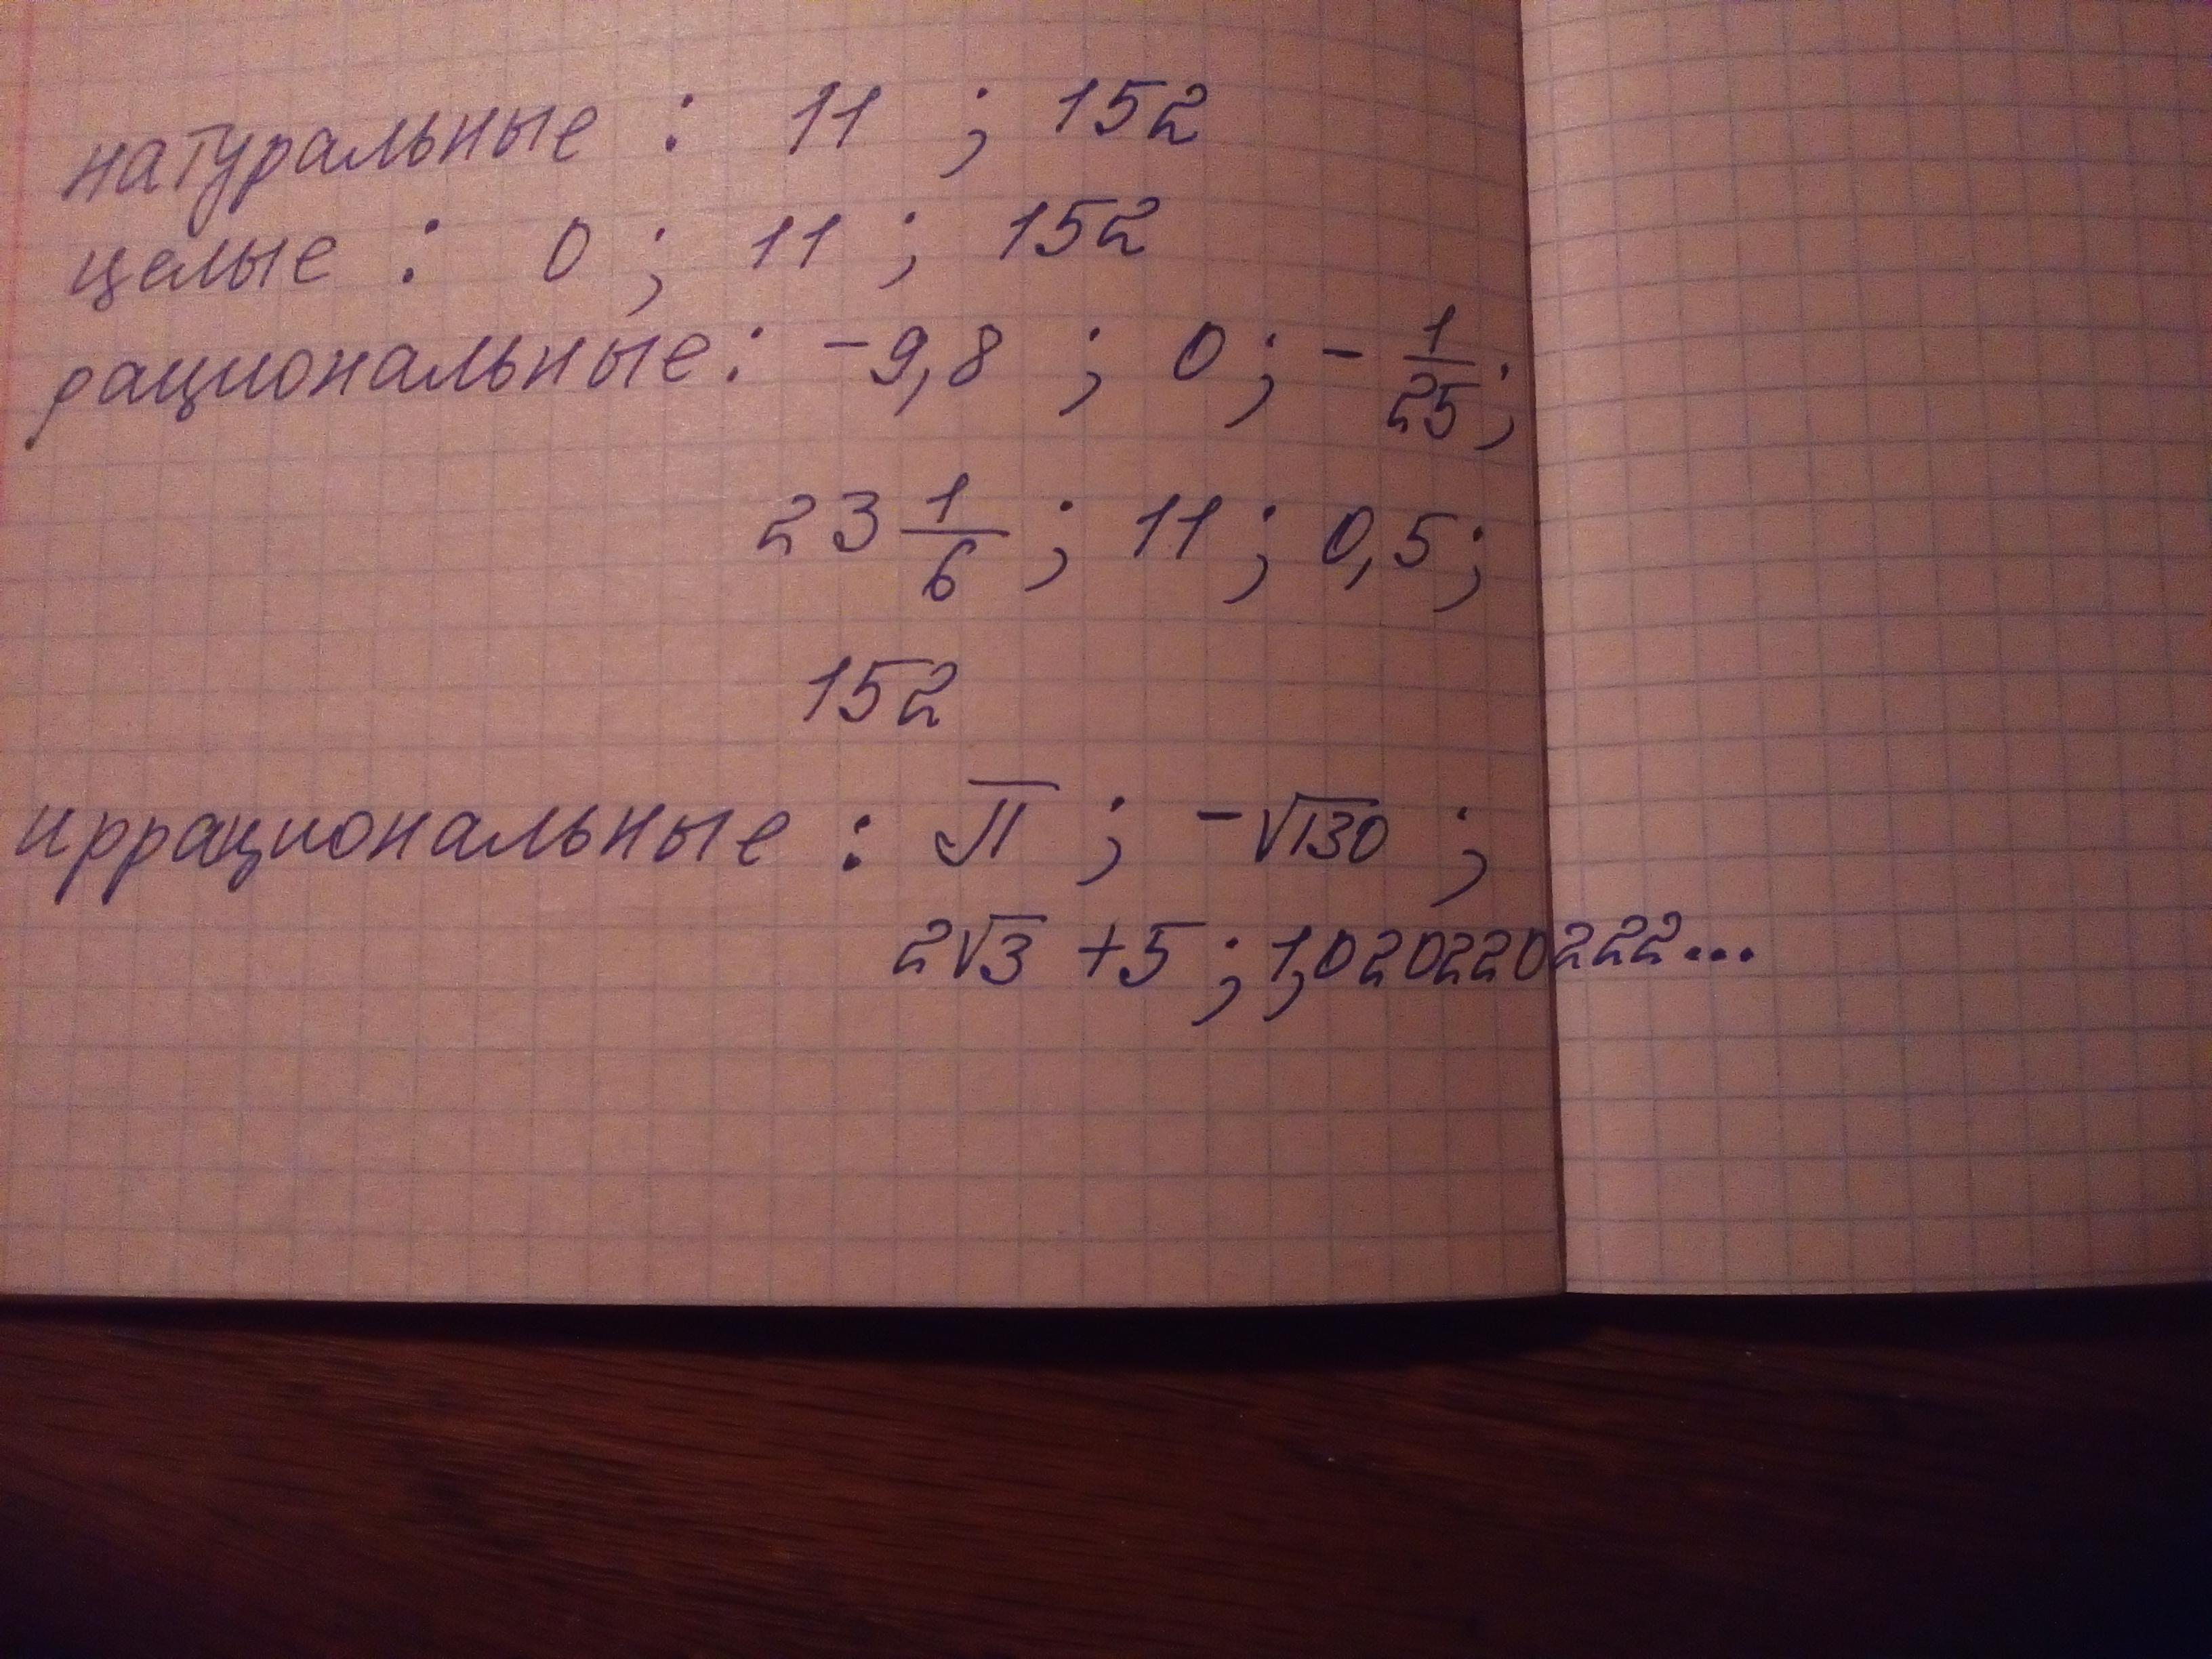 натуральные : 11 ; 152
целые : 0 ; 11 ; 152
рациональные : -9,8 ; 0 ; - 1/25 ;
23 1/6 ; 11 ; 0,5 ;
152
иррациональные : π ; -√130 ;
2√3 +5 ; 1,020220222...